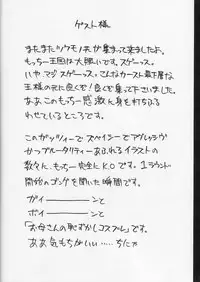 ゲスト様
またまたツウモノが集まって来ました。
もっちー王国は大賑いです。スゲーっス。
ハヤ、マジスゲーっス。こんなカースト最下層な
王様の元に良くぞ!良くぞ集って下さいました。
ああ、このもっちー感激に身を打ちふる
わせているところです。
このガッツィーでスペイシーでアグレッシヴ
かつブルータリティーあふれるイラストの
数々に、もっちー完全にK.O.です。1ラウンド
開始のゴングを聞いた瞬間です。
ガイーーーーンと
ボイーーーーンと
「お母さんの恥ずかしコスプレ」です。
ああ気もちがいい……ちにゃ